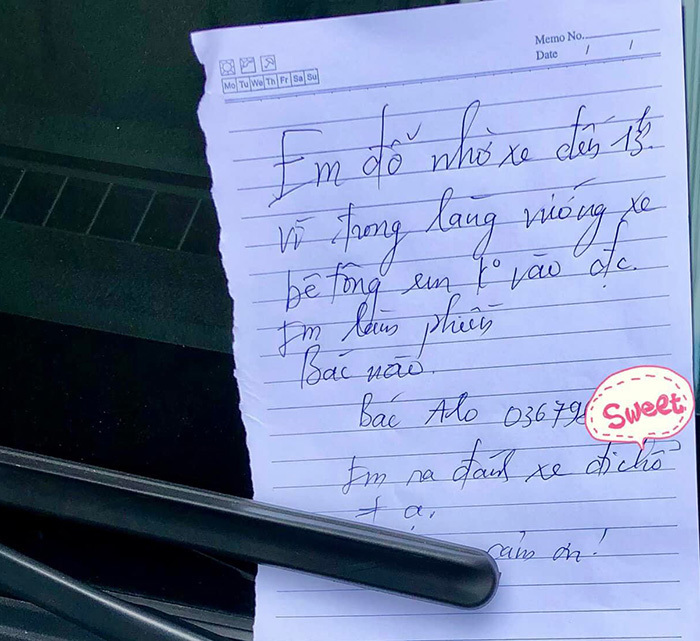 Memo No.
Date / /
Mo Tu We Th Fr Sa Su
Em đỗ nhờ xe đến 13h
vì trong làng vướng xe
bê tông em ko vào đc.
Em làm phiền
Bác nào.
Bác Alo 03679
Sweet
Em ra đánh xe đi chỗ
≠ ạ.
cảm ơn!